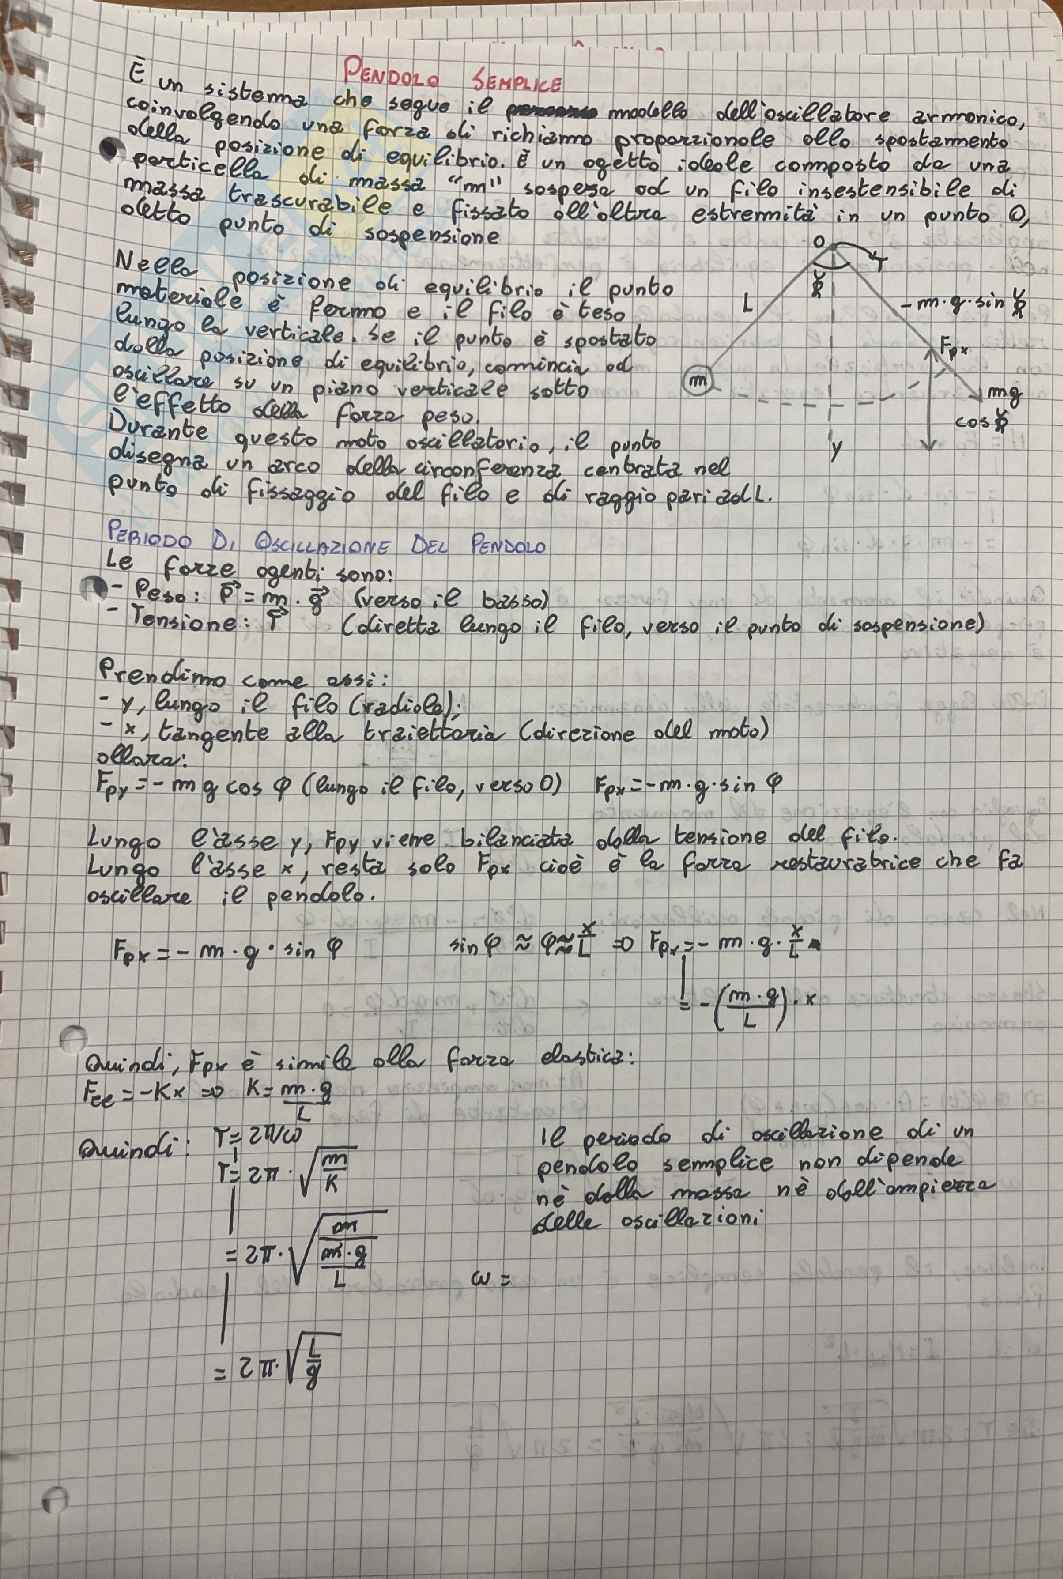 PENDOLO SEMPLICE
È un sistema che segue il modello dell'oscillatore armonico,
coinvolgendo una forza di richiamo proporzionale allo spostamento
della posizione di equilibrio. È un ogetto ideale composto da una
particella di massa "m" sospesa ad un filo insestensibile di
massa trascurabile e fissato all'altra estremità in un punto O,
detto punto di sospensione
Nella posizione di equilibrio il punto
materiale è fermo e il filo è teso
lungo la verticale. Se il punto è spostato
dalla posizione di equilibrio, comincia ad
oscillare su un piano verticale sotto
l'effetto della forza peso.
Durante questo moto oscillatorio, il punto
disegna un arco della circonferenza centrata nel
punto di fissaggio del filo e di raggio pari ad L.
O
T
L
-m·g·sin
Fpx
m
mg
cos
y
PERIODO DI OSCILLAZIONE DEL PENDOLO
Le forze agenti sono:
- Peso: P⃗ = m·g⃗ (verso il basso)
- Tensione: T⃗ (diretta lungo il filo, verso il punto di sospensione)
Prendimo come assi:
- y, lungo il filo (radiale);
- x, tangente alla traiettoria (direzione del moto)
allora:
Fpy = -mg cos φ (lungo il filo, verso O) Fpx = -m·g·sin φ
Lungo l'asse y, Fpy viene bilanciata dalla tensione del filo.
Lungo l'asse x, resta solo Fpx cioè è la forza restauratrice che fa
oscillare il pendolo.
Fpx = -m·g·sin φ sin φ ≈ φ ≈ x/L => Fpx = -m·g·x/L
= -(m·g/L)·x
Quindi, Fpx è simile alla forza elastica:
Fel = -Kx => K = m·g/L
Quindi: T = 2π/ω
T = 2π·√(m/K)
= 2π·√(m/(m·g/L))
= 2π·√(L/g)
Il periodo di oscillazione di un
pendolo semplice non dipende
nè dalla massa nè dall'ampiezza
delle oscillazioni
ω =